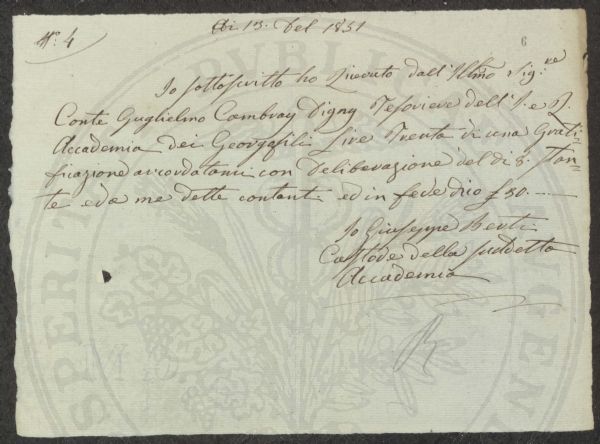 N.º 4
Di 13. Del 1851
6
Io sottoscritto ho Ricevuto dall'Ill:mo Sig:re
Conte Guglielmo Cambray Digny Tesoriere dell'I. e R.
Accademia dei Georgofili Lire Trenta di una Grati-
ficazione accordatami con Deliberazione del di 8. Stan-
te e da me dette contanti ed in fede dico £ 30.
Io Giuseppe Berti
Custode della suddetta
Accademia
PUBLICAE
PROSPERITATI